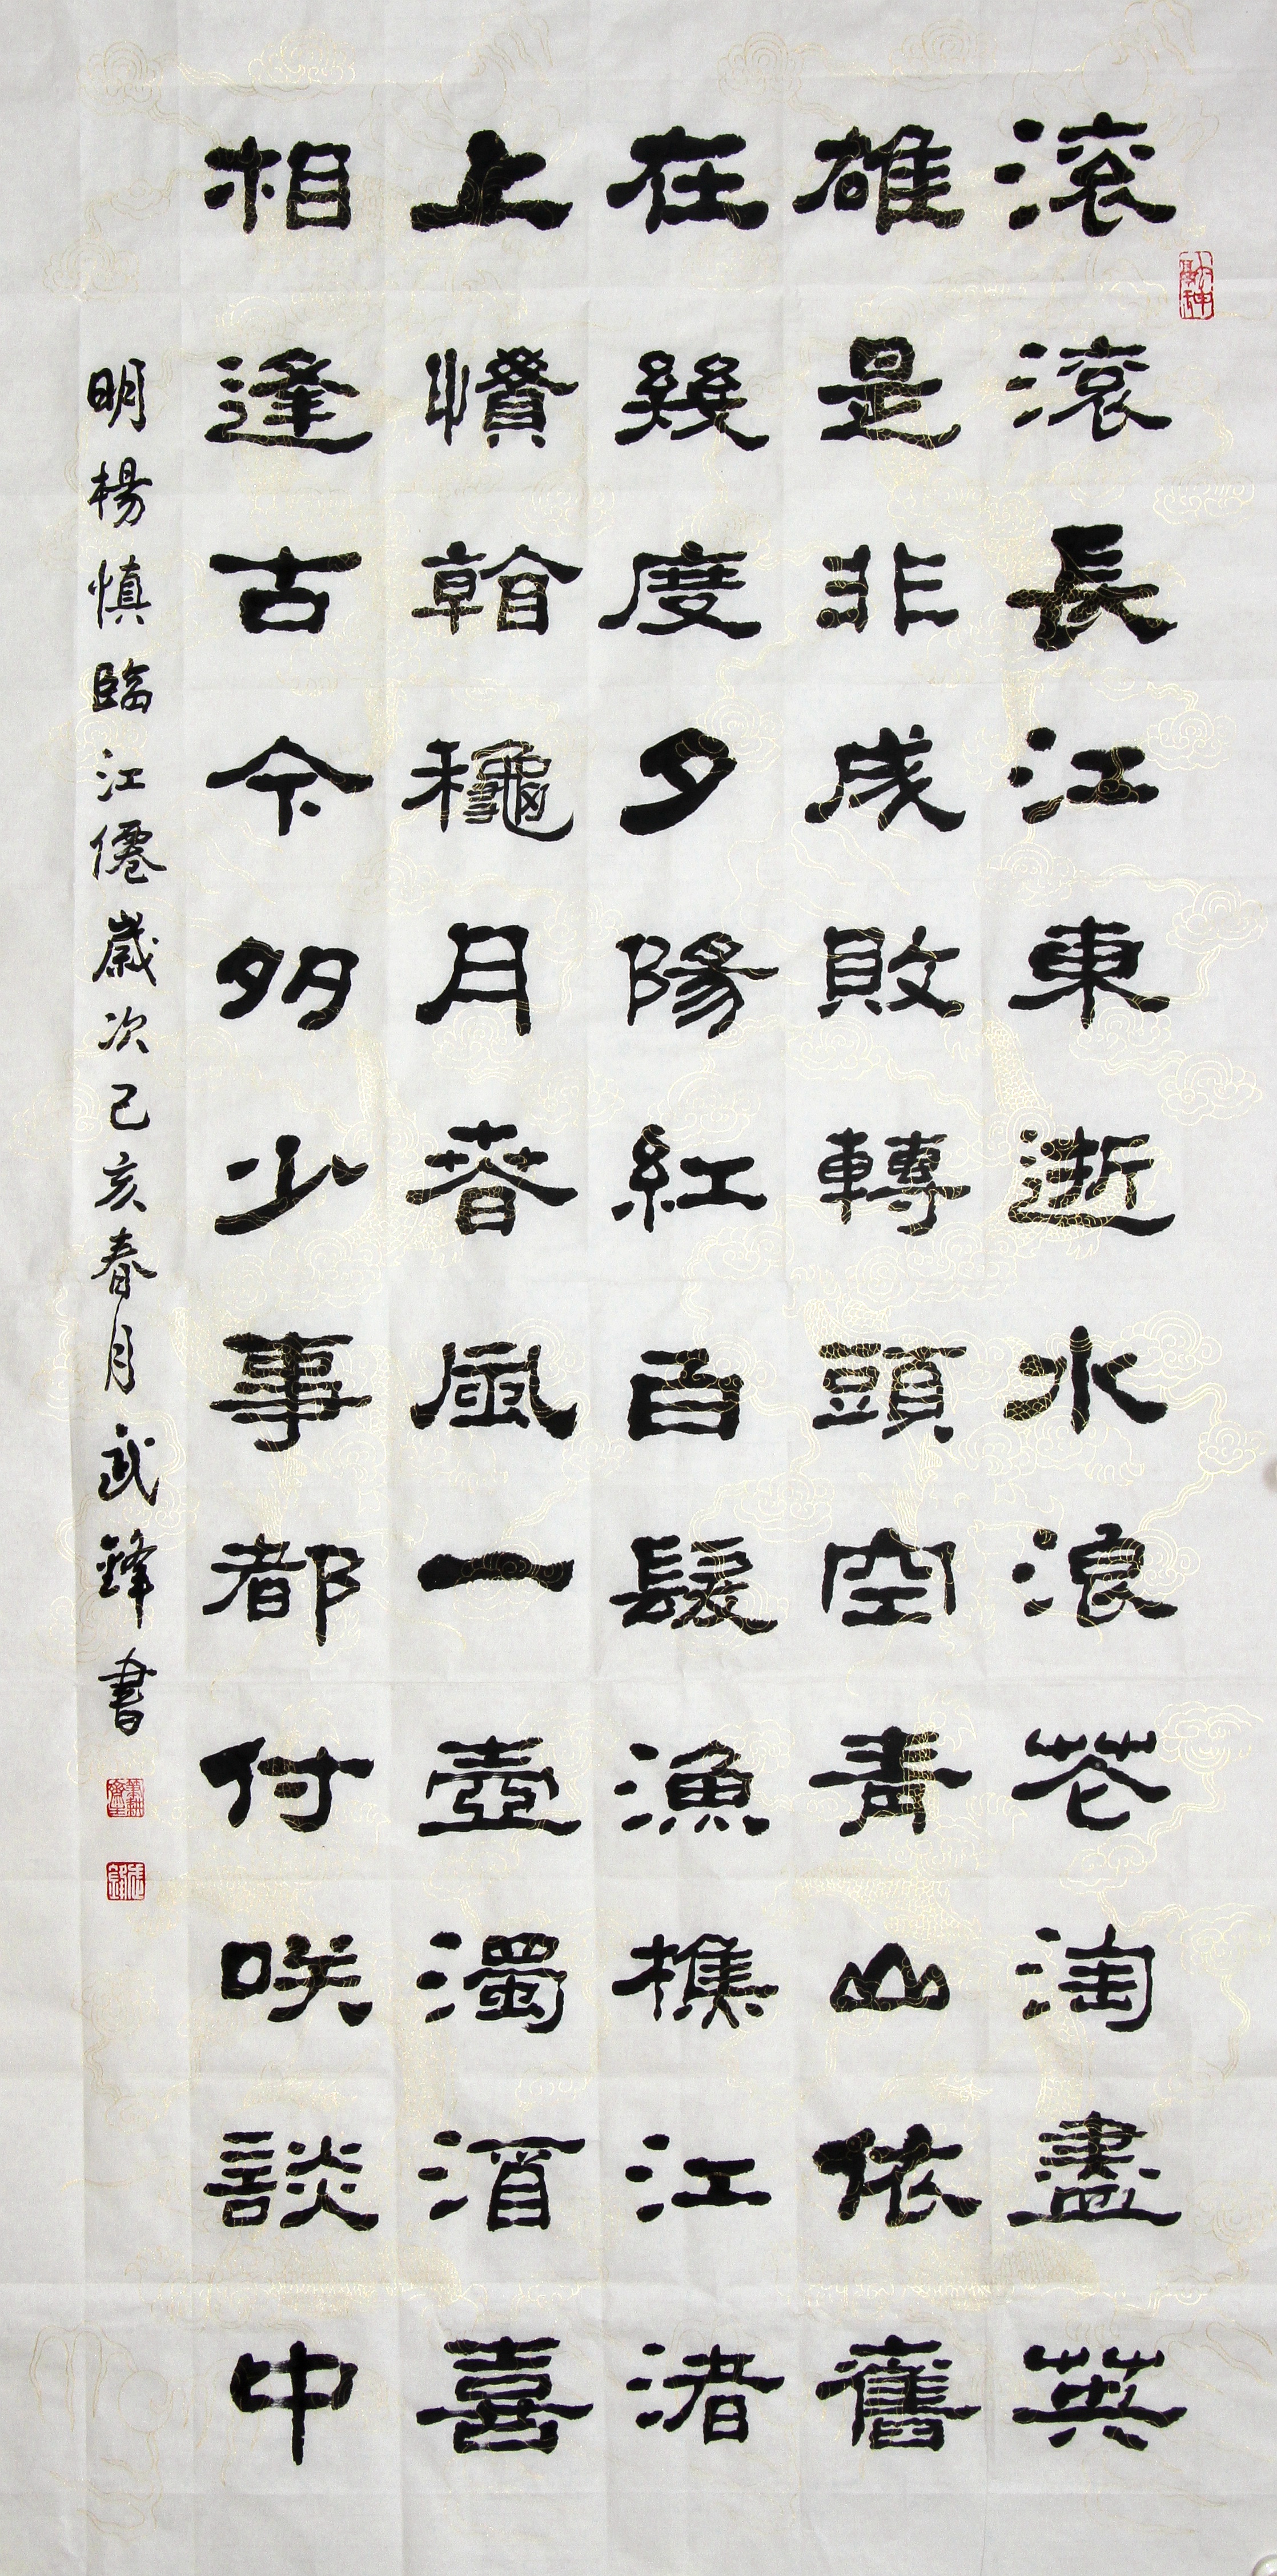 滾滾長江東逝水浪花淘盡英
雄是非成敗轉頭空青山依舊
在幾度夕陽紅白髮漁樵江渚
上慣看龝月春風一壺濁酒喜
相逢古今多少事都付咲談中
明楊慎臨江僊歲次己亥春月武鋒書